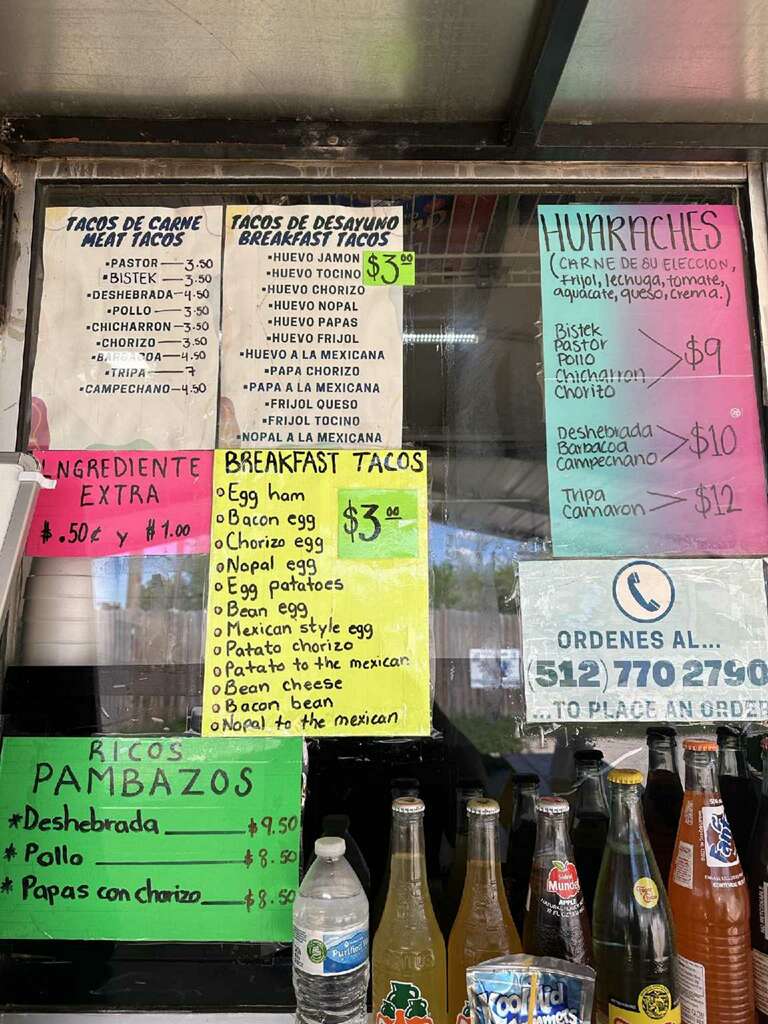 TACOS DE CARNE
MEAT TACOS
▪PASTOR — 3.50
▪BISTEK — 3.50
▪DESHEBRADA — 4.50
▪POLLO — 3.50
▪CHICHARRON — 3.50
▪CHORIZO — 3.50
▪BARBACOA — 4.50
▪TRIPA — 7
▪CAMPECHANO — 4.50
TACOS DE DESAYUNO
BREAKFAST TACOS
▪HUEVO JAMON
▪HUEVO TOCINO
▪HUEVO CHORIZO
▪HUEVO NOPAL
▪HUEVO PAPAS
▪HUEVO FRIJOL
▪HUEVO A LA MEXICANA
▪PAPA CHORIZO
▪PAPA A LA MEXICANA
▪FRIJOL QUESO
▪FRIJOL TOCINO
▪NOPAL A LA MEXICANA
$3.00
HUARACHES
(CARNE DE SU ELECCION,
frijol, lechuga, tomate,
aguacate, queso, crema.)
Bistek
Pastor
Pollo
Chicharron
Chorizo
$9
Deshebrada
Barbacoa
Campechano
$10
Tripa
Camaron
$12
INGREDIENTE
EXTRA
$.50¢ y $1.00
BREAKFAST TACOS
o Egg ham
o Bacon egg
o Chorizo egg
o Nopal egg
o Egg potatoes
o Bean egg
o Mexican style egg
o Patato chorizo
o Patato to the mexican
o Bean cheese
o Bacon bean
o Nopal to the mexican
$3.00
ORDENES AL...
(512) 770 2790
...TO PLACE AN ORDER
RICOS
PAMBAZOS
* Deshebrada ____ $9.50
* Pollo ____ $8.50
* Papas con chorizo ____ $8.50
Purified
Sidral
Mundet
APPLE
Topo Chico
Kool-Aid
Jammers